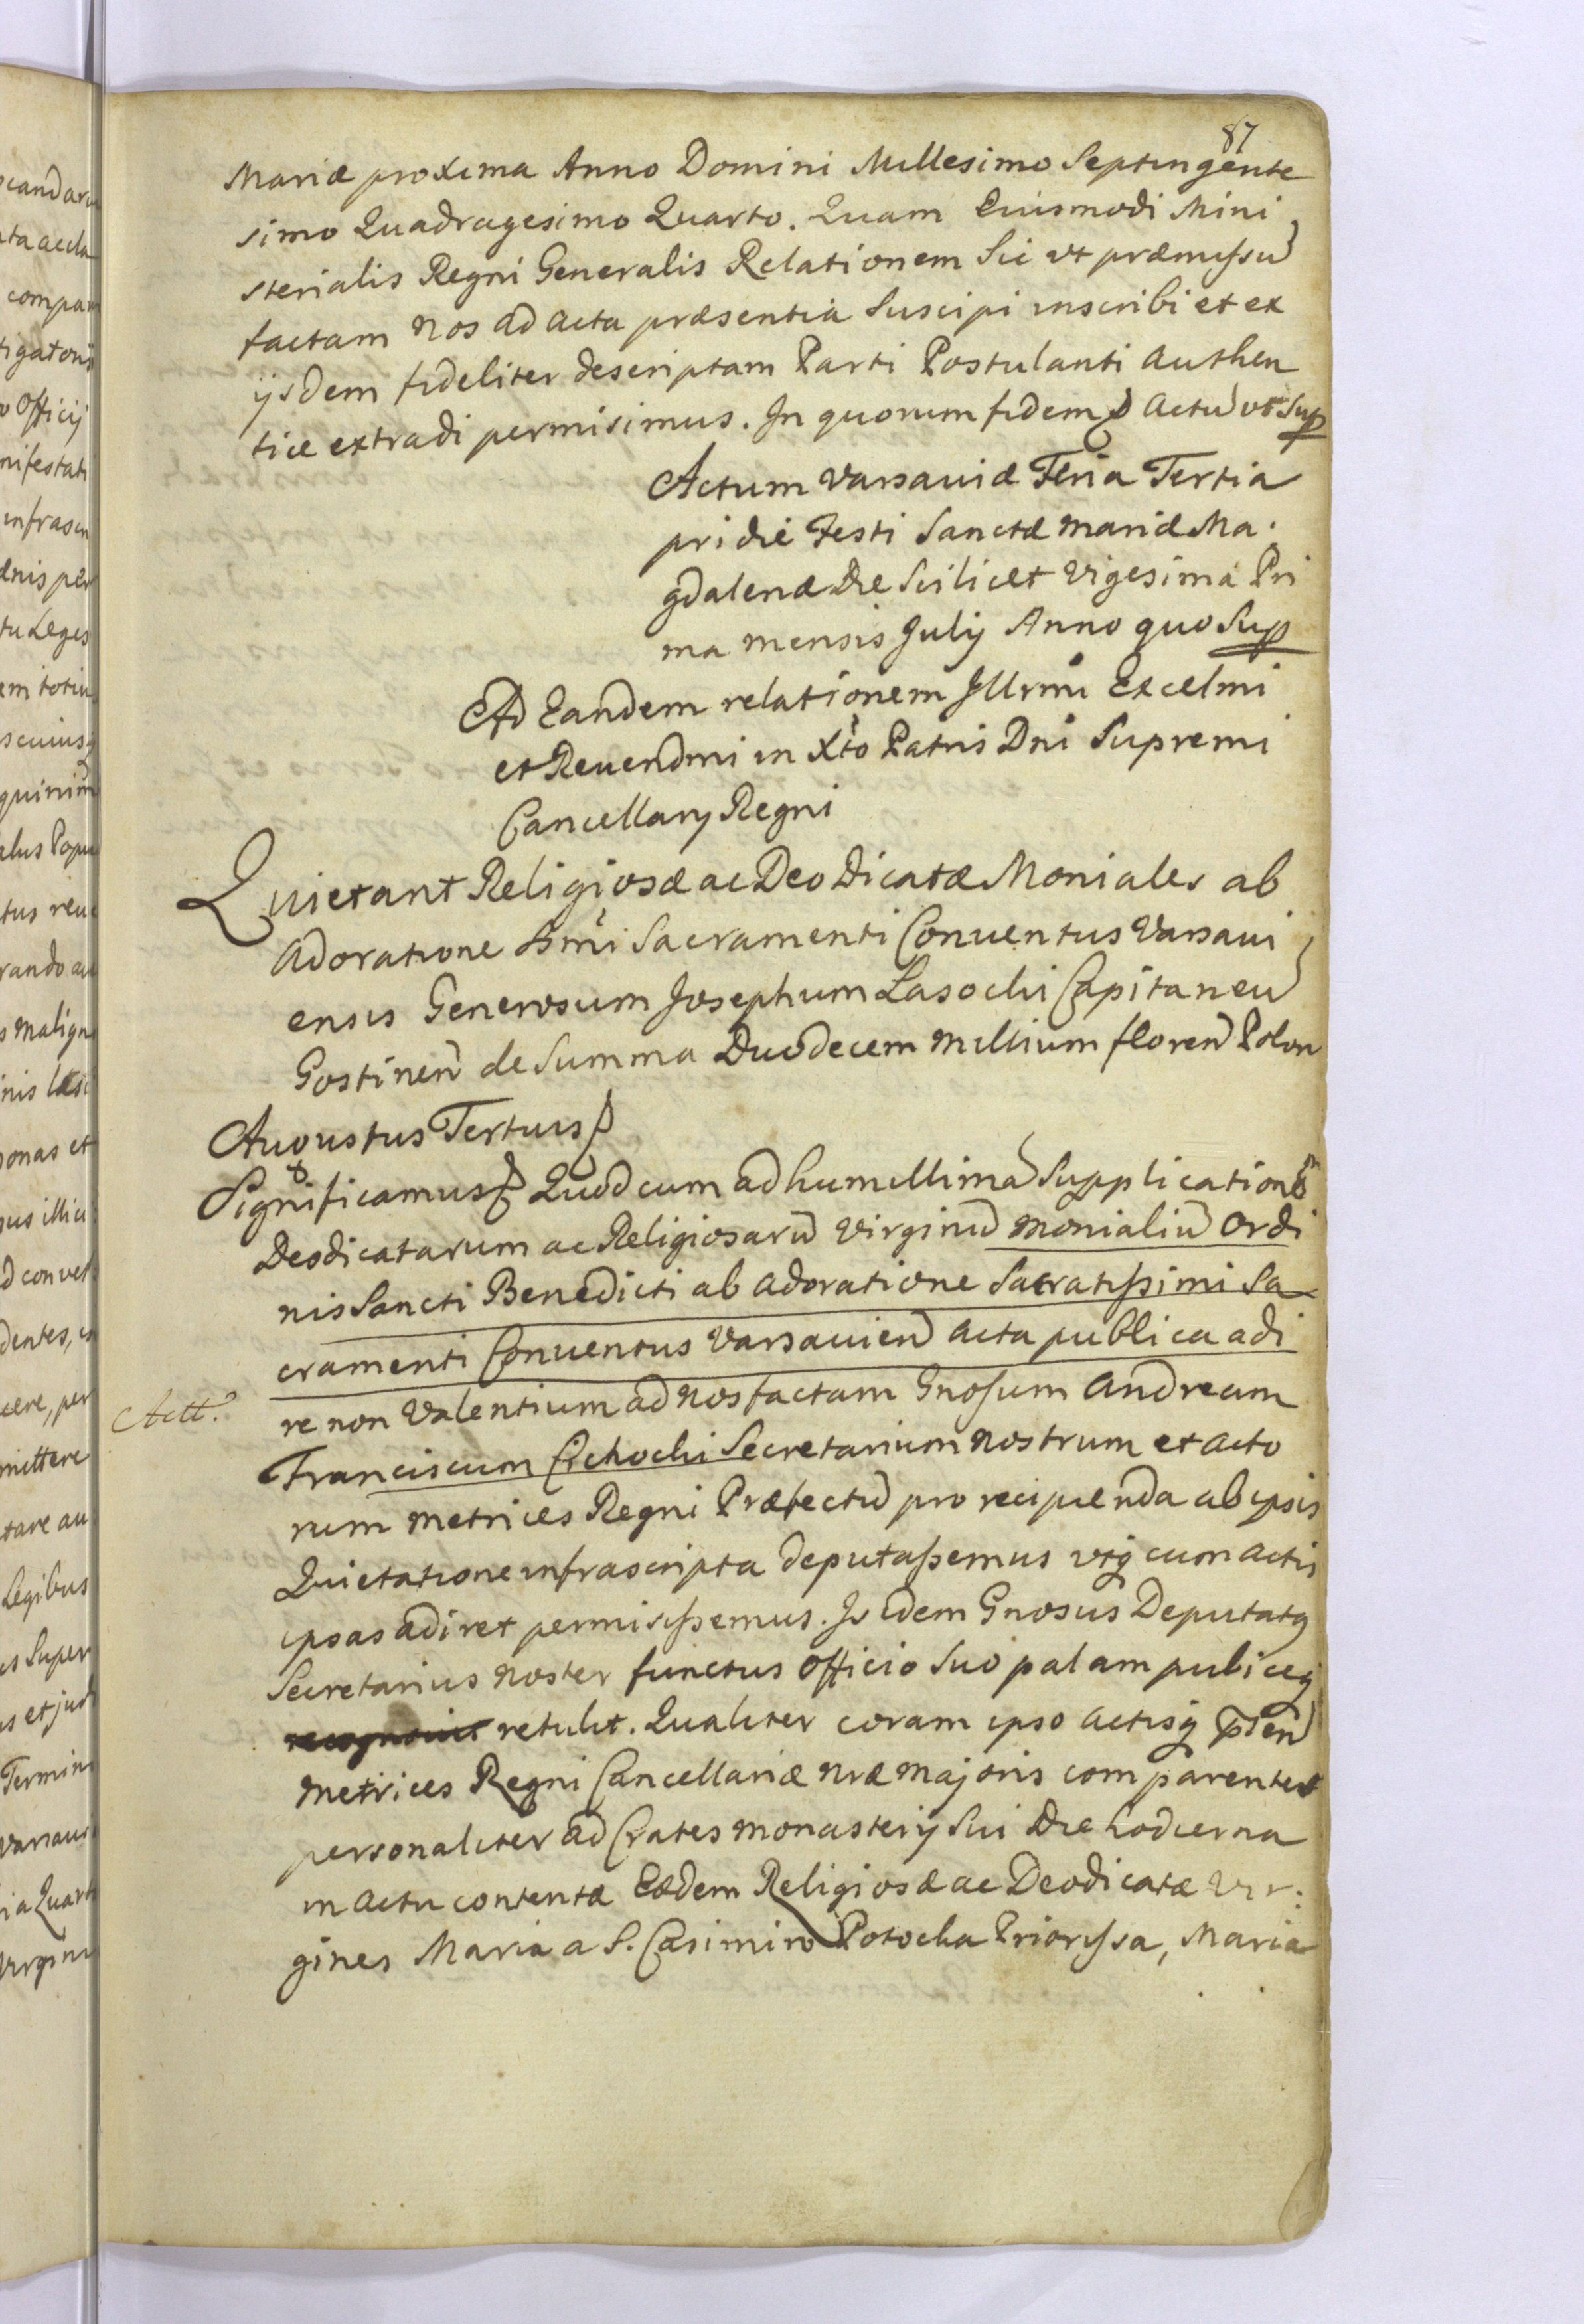 87
Mariæ proxima Anno Domini Millesimo Septingente
simo Quadragesimo Quarto. Quam Eiusmodi Mini
sterialis Regni Generalis Relationem Sic vt præmissū
factam Nos ad acta præsentia Suscipi inscribi et ex
ijsdem fideliter descriptam Parti Postulanti Authen
tice extradi permisimus. In quorum fidem Actū vt Sup
Actum Varsaviæ Feria Tertia
pridie Festi Sanctæ Mariæ Ma
gdalenæ Die Scilicet Vigesima Pri
ma mensis Julij Anno quo Sup
Ad Eandem relationem Jllrmi Excelmi
et Reuendmi in Xto Patris Dni Supremi
Cancellarij Regni
Quietant Religiosæ ac Deo Dicatæ Moniales ab
Adoratione Ssmi Sacramenti Conuentus Varsaui
ensis Generosum Josephum Lasocki Capitaneū
Gostinen de Summa Duodecem Millium floren Polon
Augustus Tertius
Significamus Quod cum ad humillimā Supplicationē
Deodicatarum ac Religiosarū Virginū Monialiū Ordi
nis Sancti Benedicti ab Adoratione Sacratissimi Sa
cramenti Conuentus Varsauien Acta publica adi
re non Valentium ad Nos factam Gnosum Andream
Actt.
Franciscum Cichocki Secretarium Nostrum et Acto
rum Metrices Regni Præfectū pro recipienda ab ipsis
Quietatione infrascripta deputassemus vtq cum Actis
ipsas adiret permisissemus. Is idem Gnosus Deputatq
Secretarius Noster functus Officio Suo palam publiceq
recognouit retulit. Qualiter coram ipso Actisq pñen
Metrices Regni Cancellariæ Nræ Majoris comparentes
personaliter ad Crates Monasterij Sui Die hodierna
in Actu contentæ Eædem Religiosæ ac Deodicatæ Vir
gines Maria a S. Casimiro Potocka Priorissa, Maria